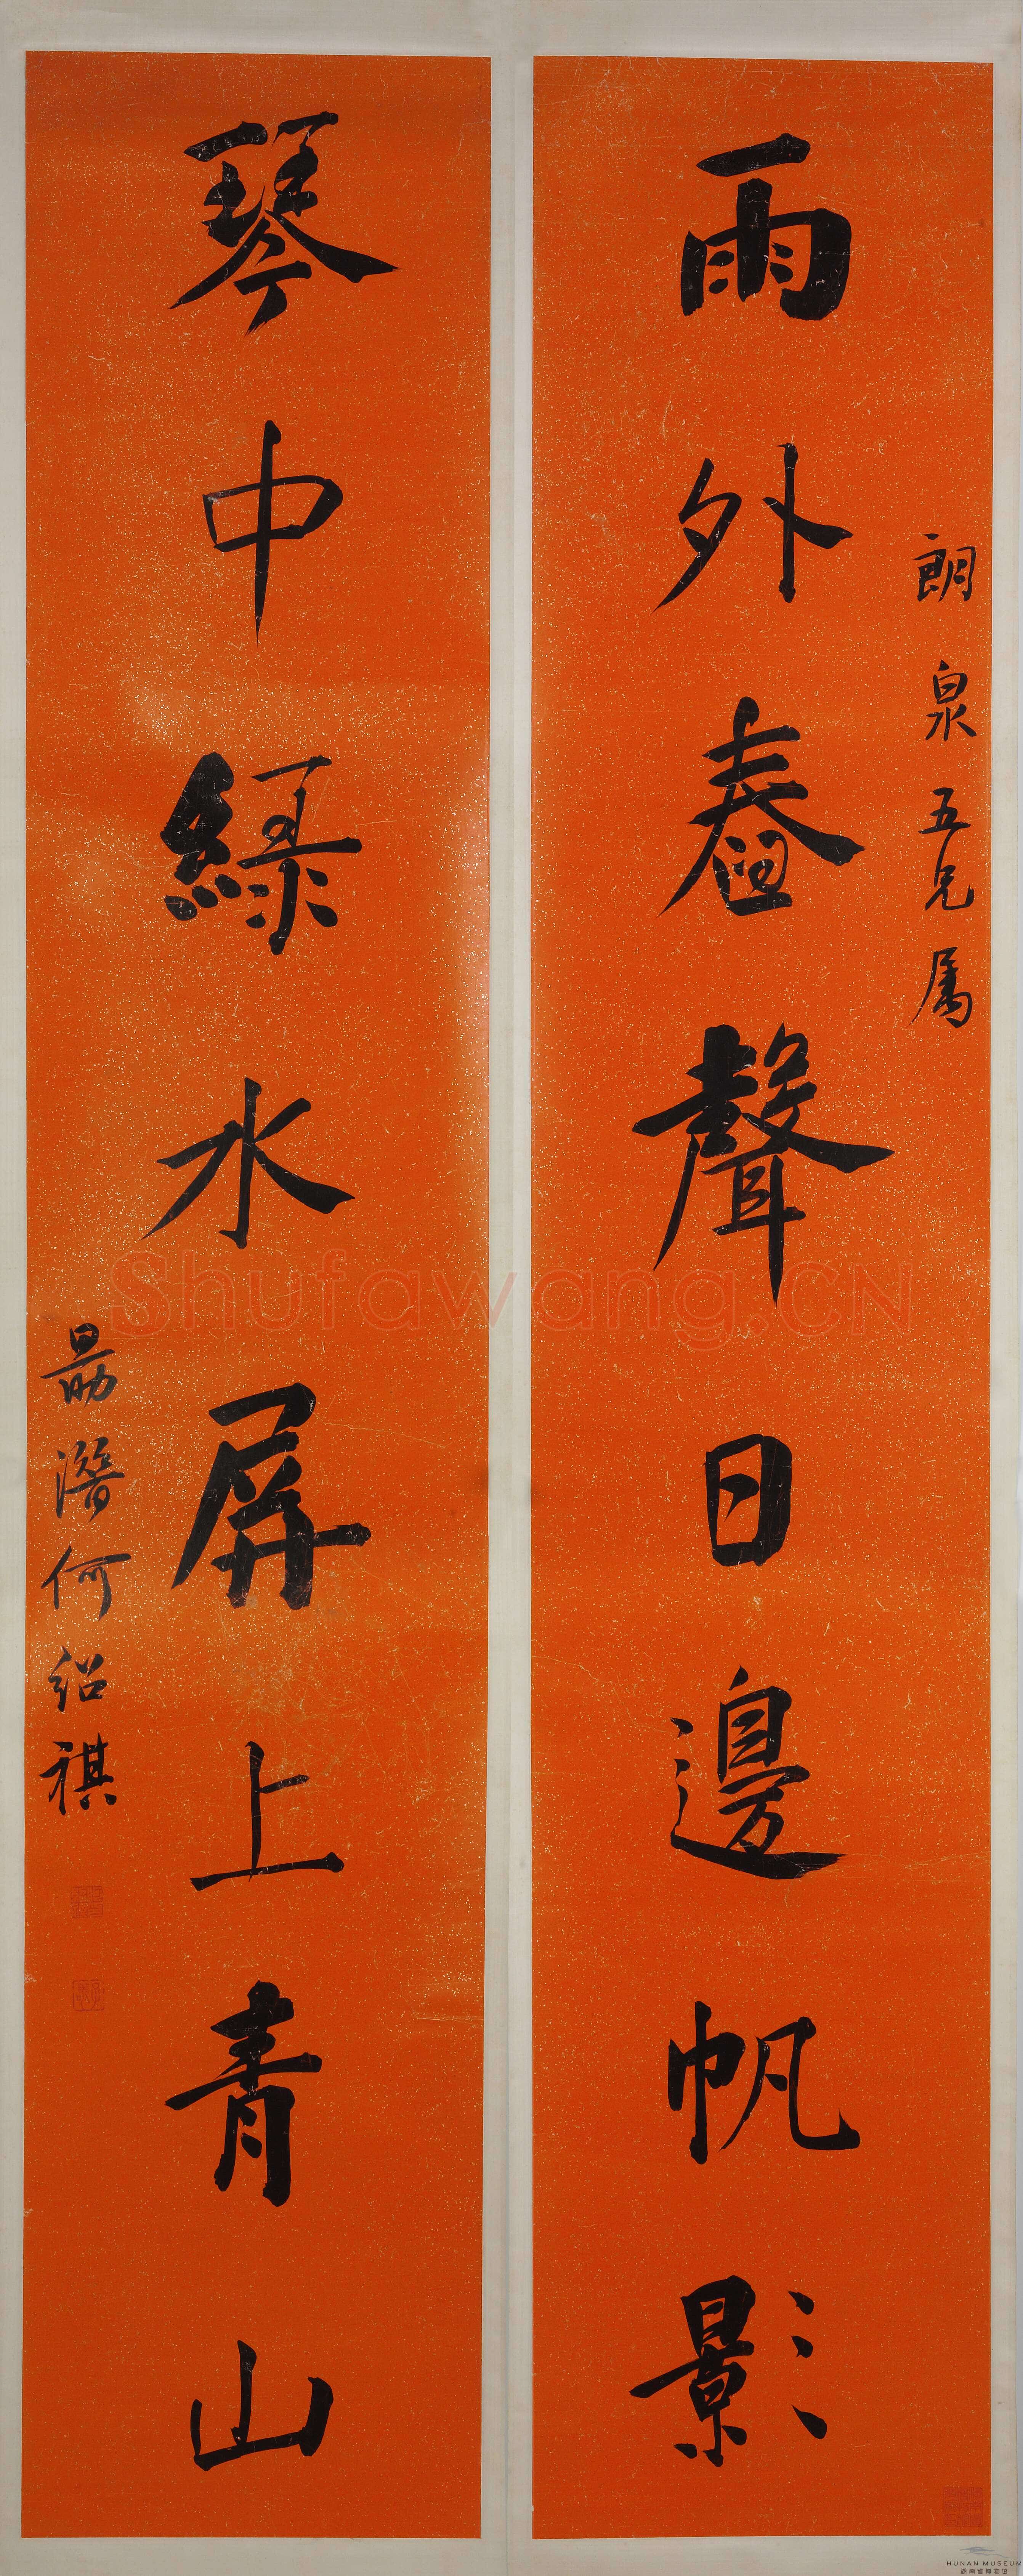 朗泉五兄属
雨外舂聲日邊帆影
琴中綠水屏上青山
勗潛何紹祺
Shufawang.CN
HUNAN MUSEUM
湖南省博物馆